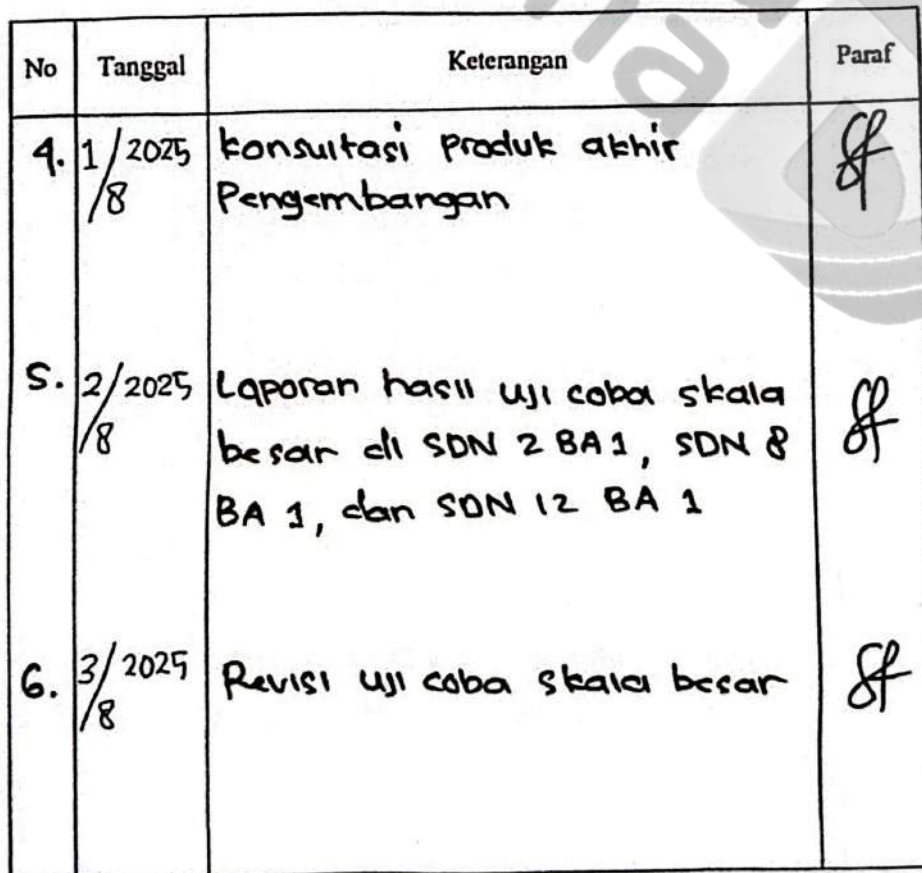 No Tanggal Keterangan Paraf
4. 1/8 2025 konsultasi Produk akhir
Pengembangan
5. 2/8 2025 Laporan hasil uji coba skala
besar di SDN 2 BA1, SDN 8
BA 1, dan SDN 12 BA 1
6. 3/8 2025 Revisi uji coba skala besar